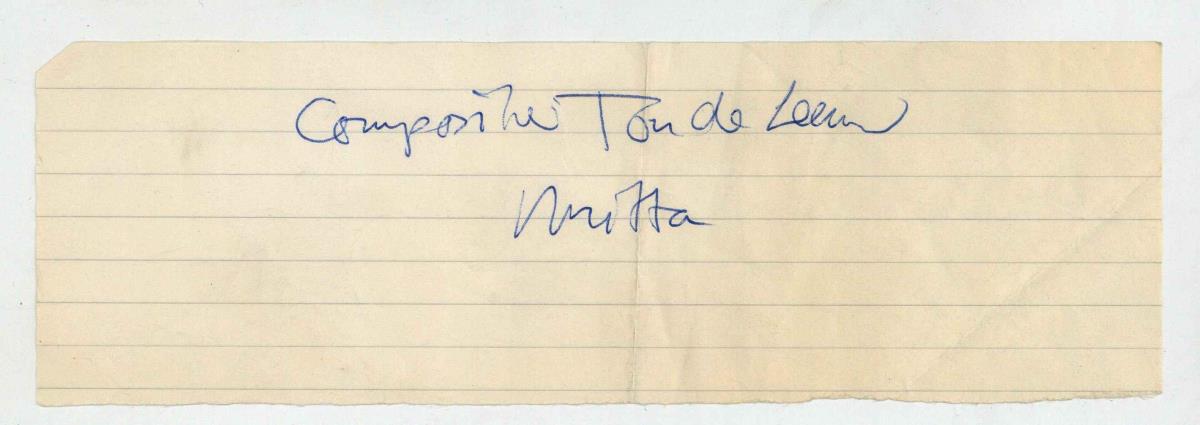 Compositie Ton de Leeuw
Nritta